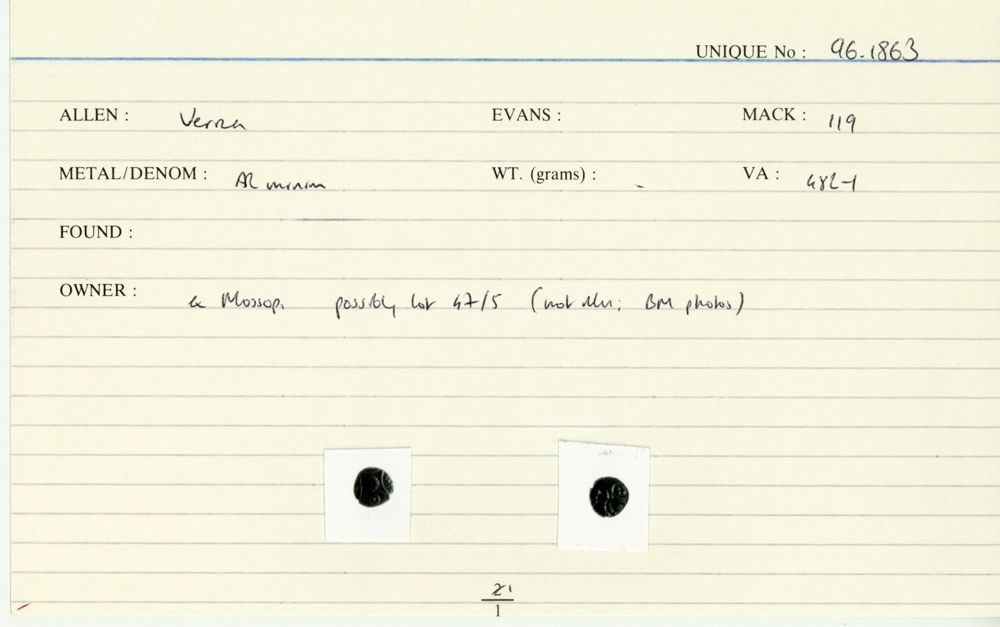 UNIQUE No : 96.1863
ALLEN : Verica EVANS : MACK : 119
METAL/DENOM : AR minim WT. (grams) : - VA : 482-1
FOUND :
OWNER : ex Mossop. possibly lot 47/5 (not illus; BM photos)
21
1